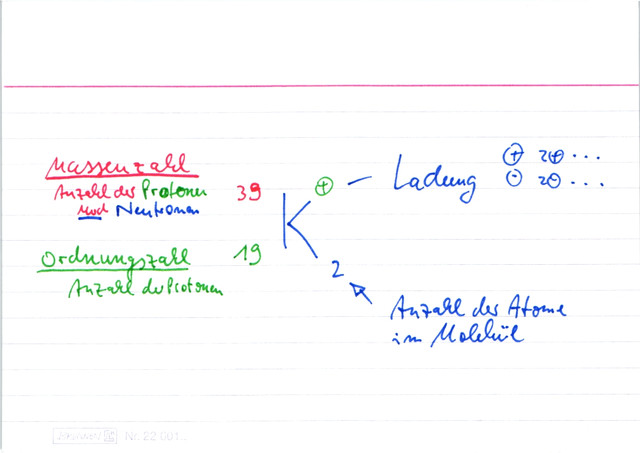 Massenzahl
Anzahl der Protonen
und Neutronen
39
Ordnungszahl
Anzahl der Protonen
19
K
⊕ – Ladung
⊕ 2⊕ ...
⊖ 2⊖ ...
2
Anzahl der Atome
im Molekül
Nr. 22 001..